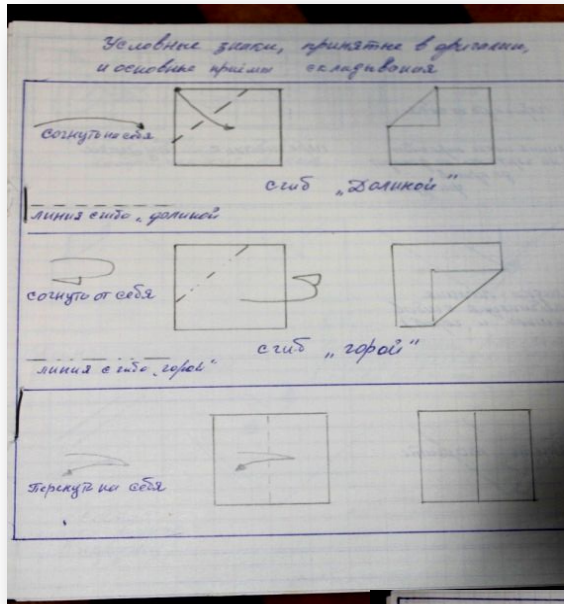 Условные знаки, принятые в оригами,
и основные приёмы складывания
согнуть на себя
сгиб „Долиной"
линия сгиба „долиной
согнуть от себя
сгиб „горой"
линия сгиба „горой"
Перегнуть на себя